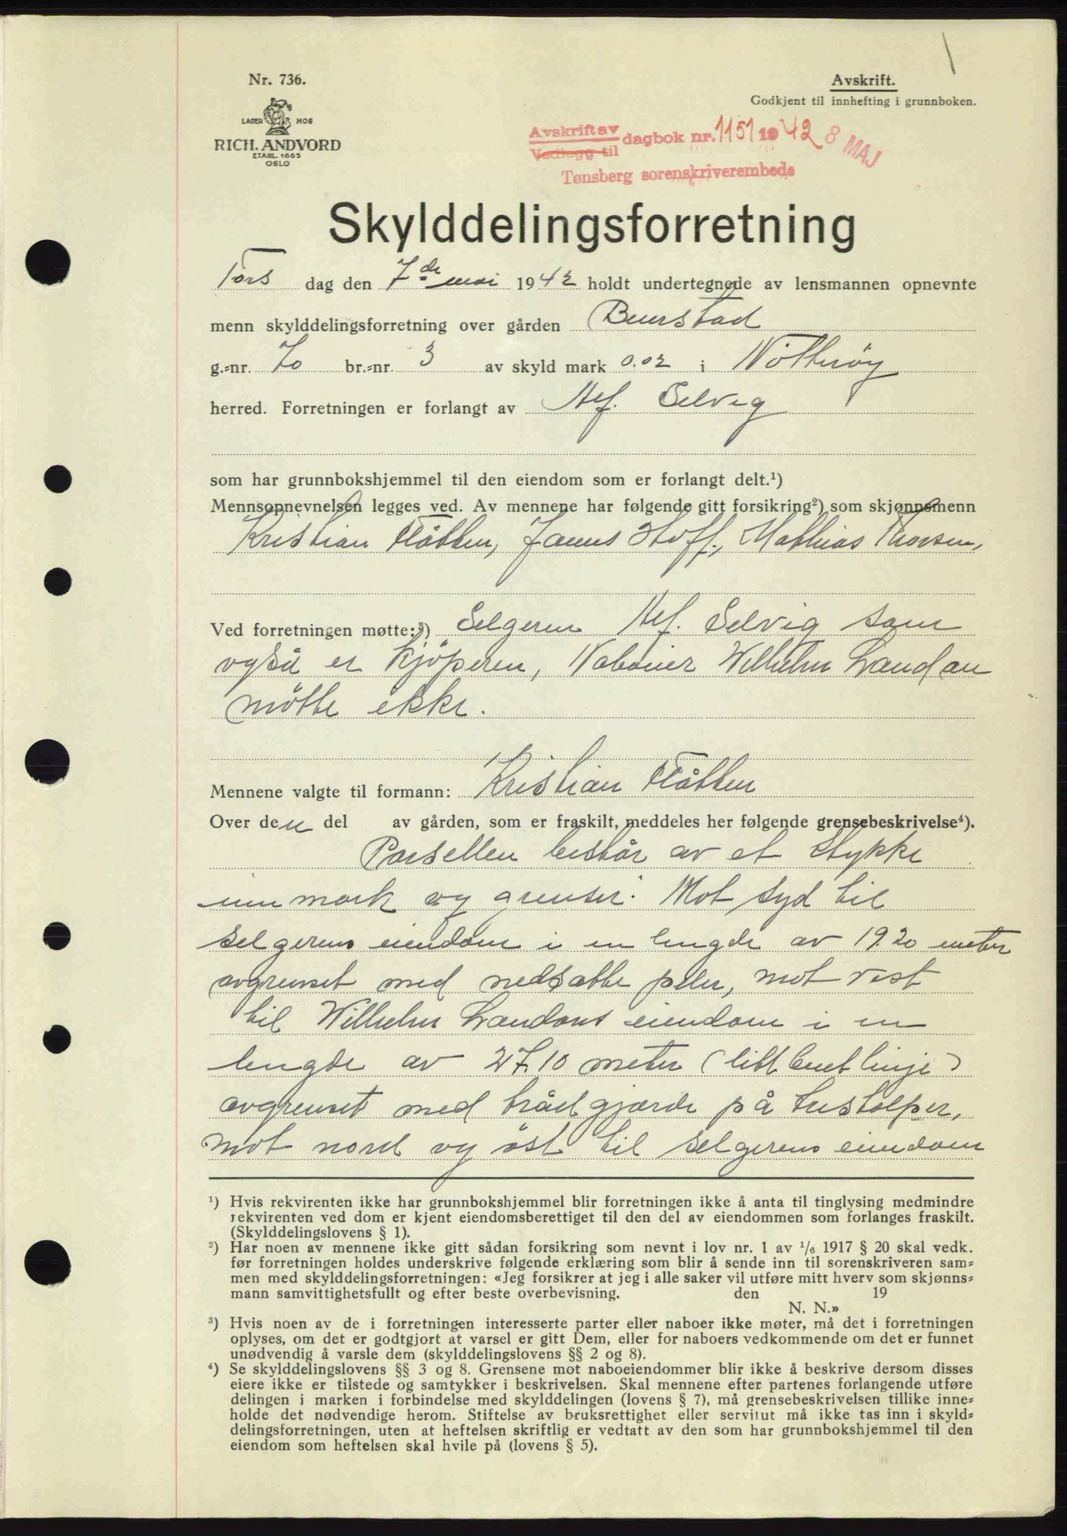 Nr. 736.
LAGER HOS
RICH. ANDVORD
ETABL. 1865
OSLO
Avskrift.
Godkjent til innhefting i grunnboken.
Avskrift av
Vedlegg til
dagbok nr. 1151 1942 8 MAJ
Tønsberg sorenskriverembede
Skylddelingsforretning
Tors dag den 7de mai 1942 holdt undertegnede av lensmannen opnevnte
menn skylddelingsforretning over gården Buerstad
g.=nr. 70 br.=nr. 3 av skyld mark 0.02 i Nötteröy
herred. Forretningen er forlangt av Alf. Selvig
som har grunnbokshjemmel til den eiendom som er forlangt delt.¹)
Mennsopnevnelsen legges ved. Av mennene har følgende gitt forsikring²) som skjønnsmenn
Kristian Flåtten, James Hoff, Mathias Thorsen,
Ved forretningen møtte:³) Selgeren Alf. Selvig som
også er kjöperen, Naboier Wilhelm Landan
mötte ekke.
Mennene valgte til formann: Kristian Flåtten
Over den del av gården, som er fraskilt, meddeles her følgende grensebeskrivelse⁴).
Parsellen består av et stykke
inn mark og grenser: Mot syd til
selgerens eiendom i en lengde av 19.20 meter
avgrenset med nedsatte peler, mot vest
til Wilhelm Landans eiendom i en
lengde av 27.10 meter (litt buet linje)
avgrenset med tråd gjærde på trestolper,
mot nord og öst til selgerens eiendom
¹) Hvis rekvirenten ikke har grunnbokshjemmel blir forretningen ikke å anta til tinglysing medmindre
rekvirenten ved dom er kjent eiendomsberettiget til den del av eiendommen som forlanges fraskilt.
(Skylddelingslovens § 1).
²) Har noen av mennene ikke gitt sådan forsikring som nevnt i lov nr. 1 av 1/6 1917 § 20 skal vedk.
før forretningen holdes underskrive følgende erklæring som blir å sende inn til sorenskriveren sam=
men med skylddelingsforretningen: «Jeg forsikrer at jeg i alle saker vil utføre mitt hverv som skjønns=
mann samvittighetsfullt og efter beste overbevisning. den 19
N. N.»
³) Hvis noen av de i forretningen interesserte parter eller naboer ikke møter, må det i forretningen
oplyses, om det er godtgjort at varsel er gitt Dem, eller for naboers vedkommende om det er funnet
unødvendig å varsle dem (skylddelingslovens §§ 2 og 8).
⁴) Se skylddelingslovens §§ 3 og 8. Grensene mot naboeiendommer blir ikke å beskrive dersom disses
eiere ikke er tilstede og samtykker i beskrivelsen. Skal mennene efter partenes forlangende utføre
delingen i marken i forbindelse med skylddelingen (lovens § 7), må grensebeskrivelsen tillike inne=
holde det nødvendige herom. Stiftelse av bruksrettighet eller servitut må ikke tas inn i skyld=
delingsforretningen, uten at heftelsen skriftlig er vedtatt av den som har grunnbokshjemmel til den
eiendom som heftelsen skal hvile på (lovens § 5).